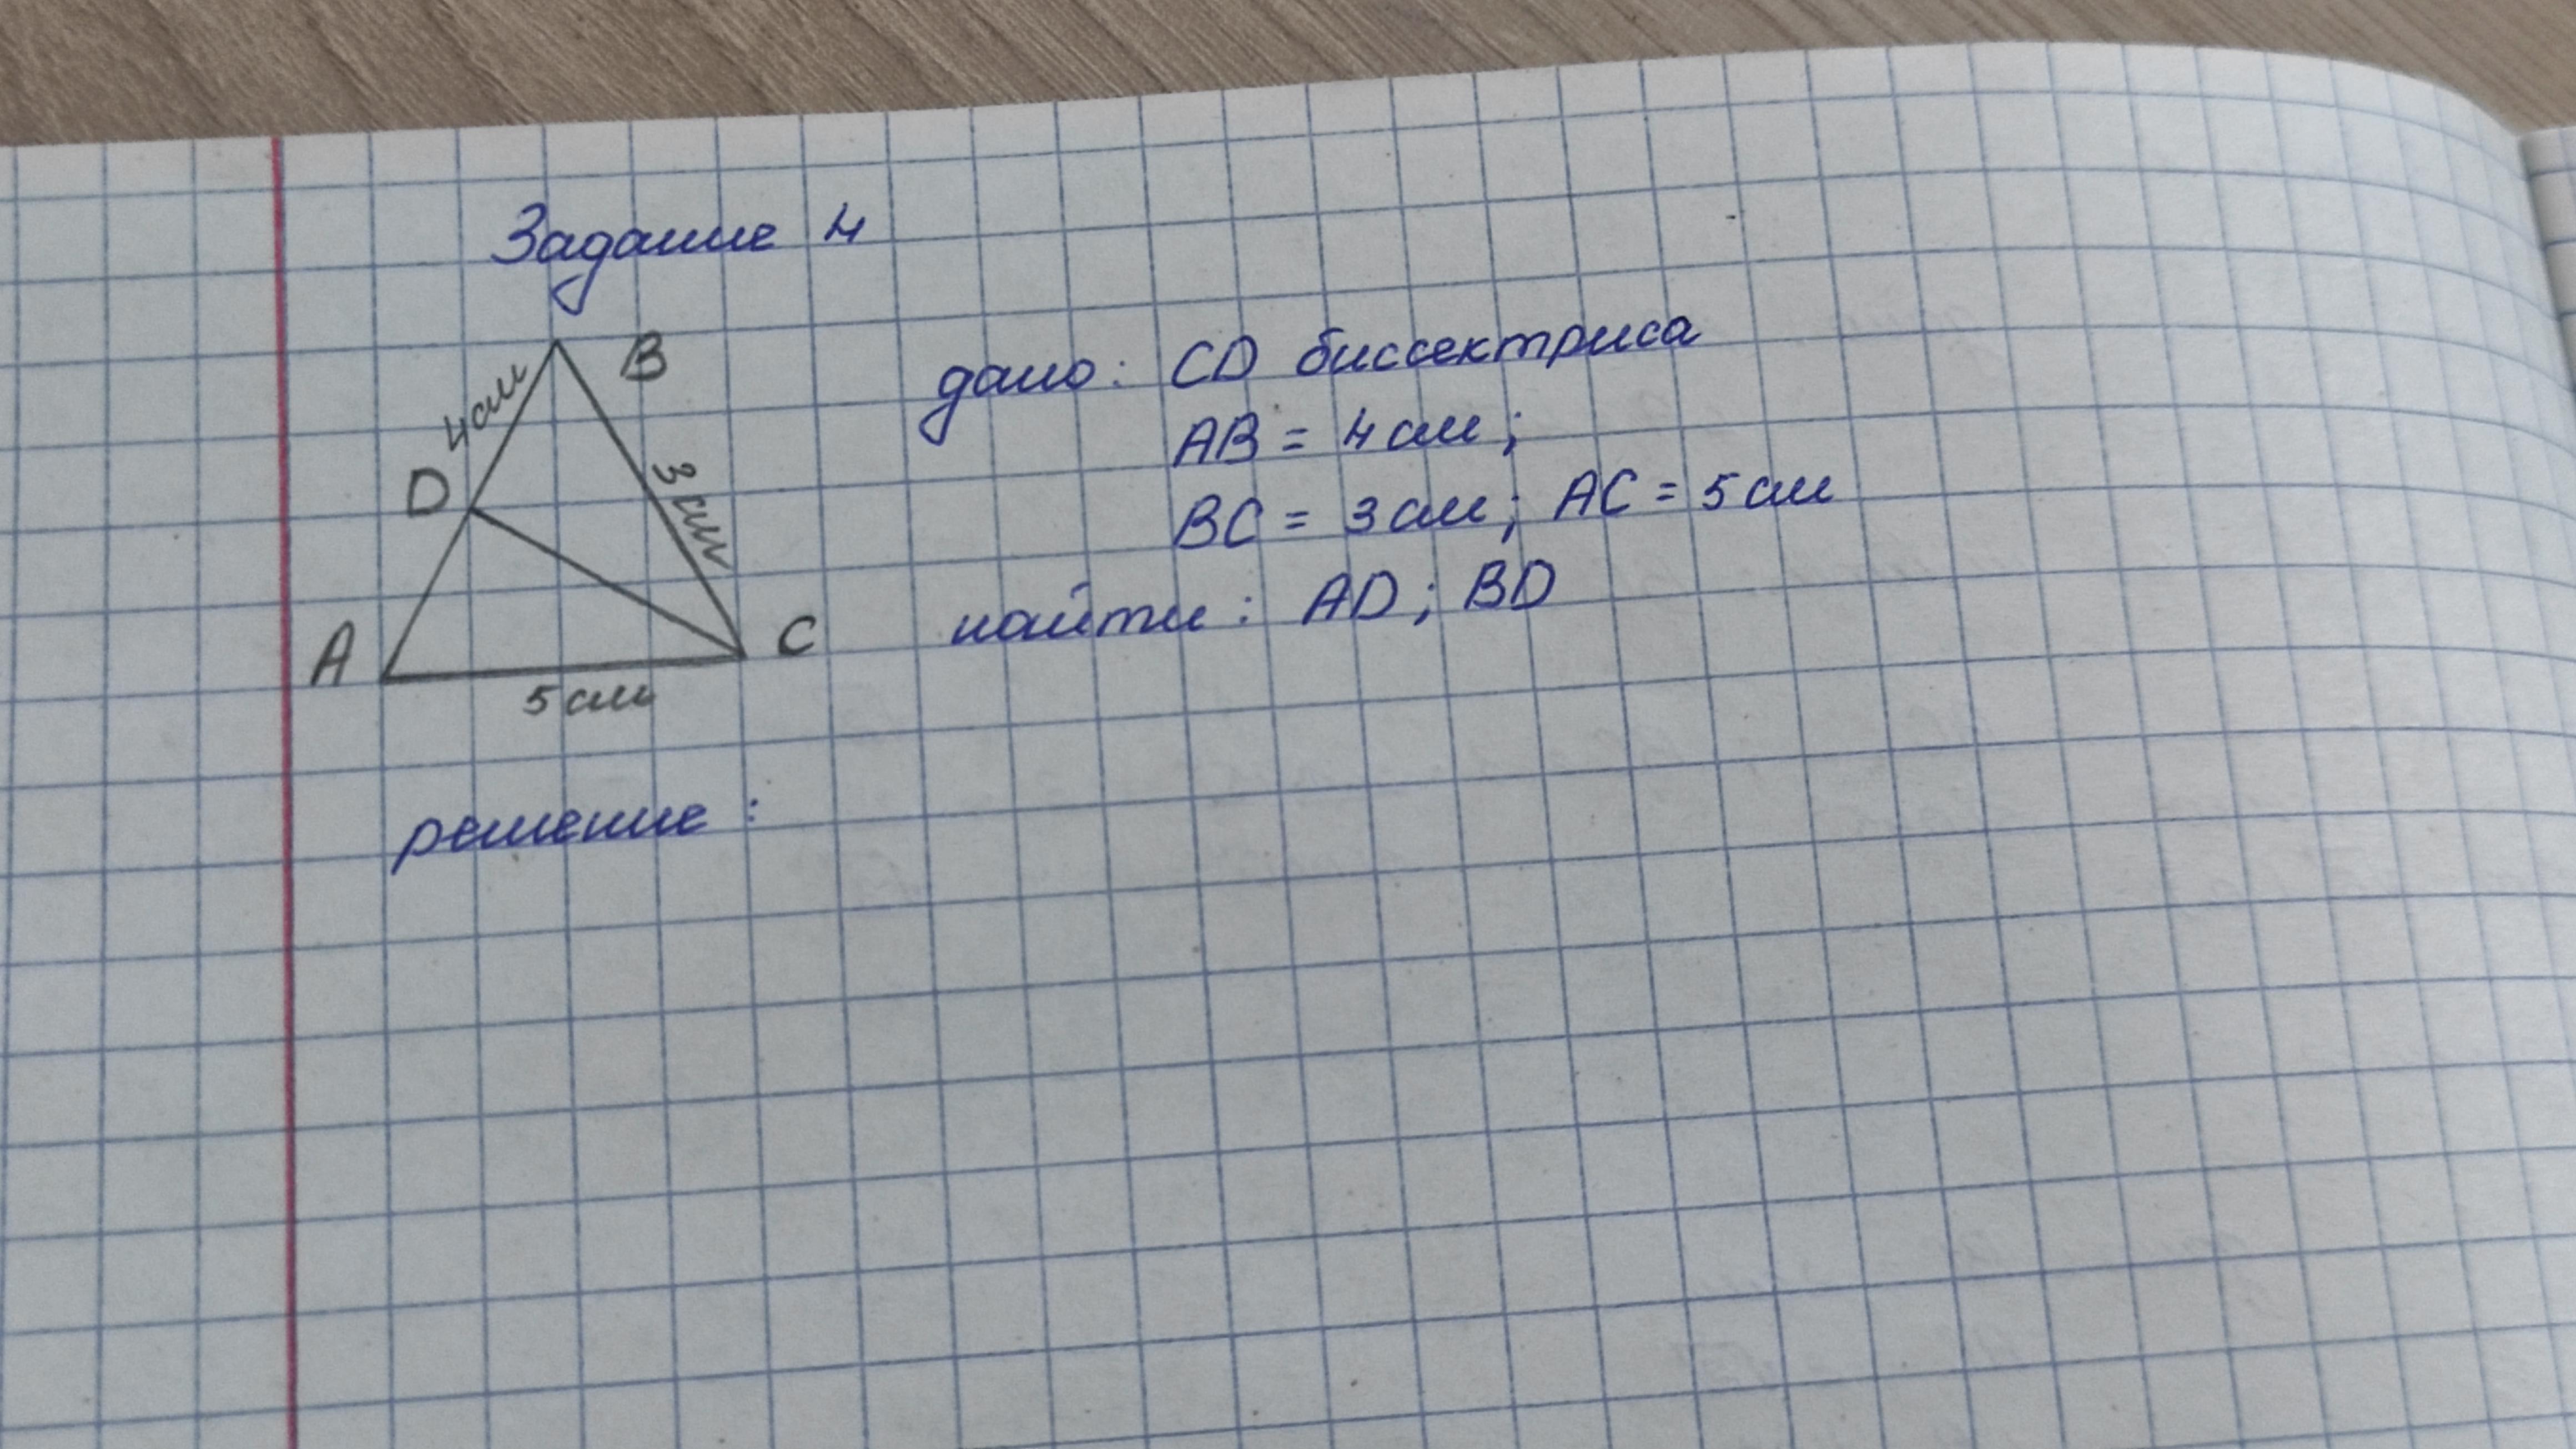 Задание 4
B
4см
D
3см
A
C
5см
дано: CD биссектриса
AB = 4см;
BC = 3см; AC = 5см
найти: AD; BD
решение: